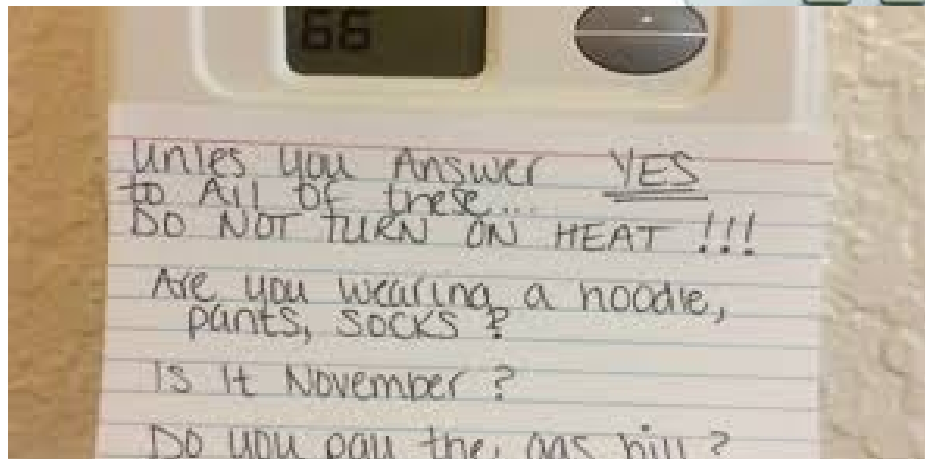 66
Unles you Answer YES
to All of these...
DO NOT TURN ON HEAT !!!
Are you wearing a hoodie,
pants, socks ?
Is It November ?
Do you pay the gas bill ?